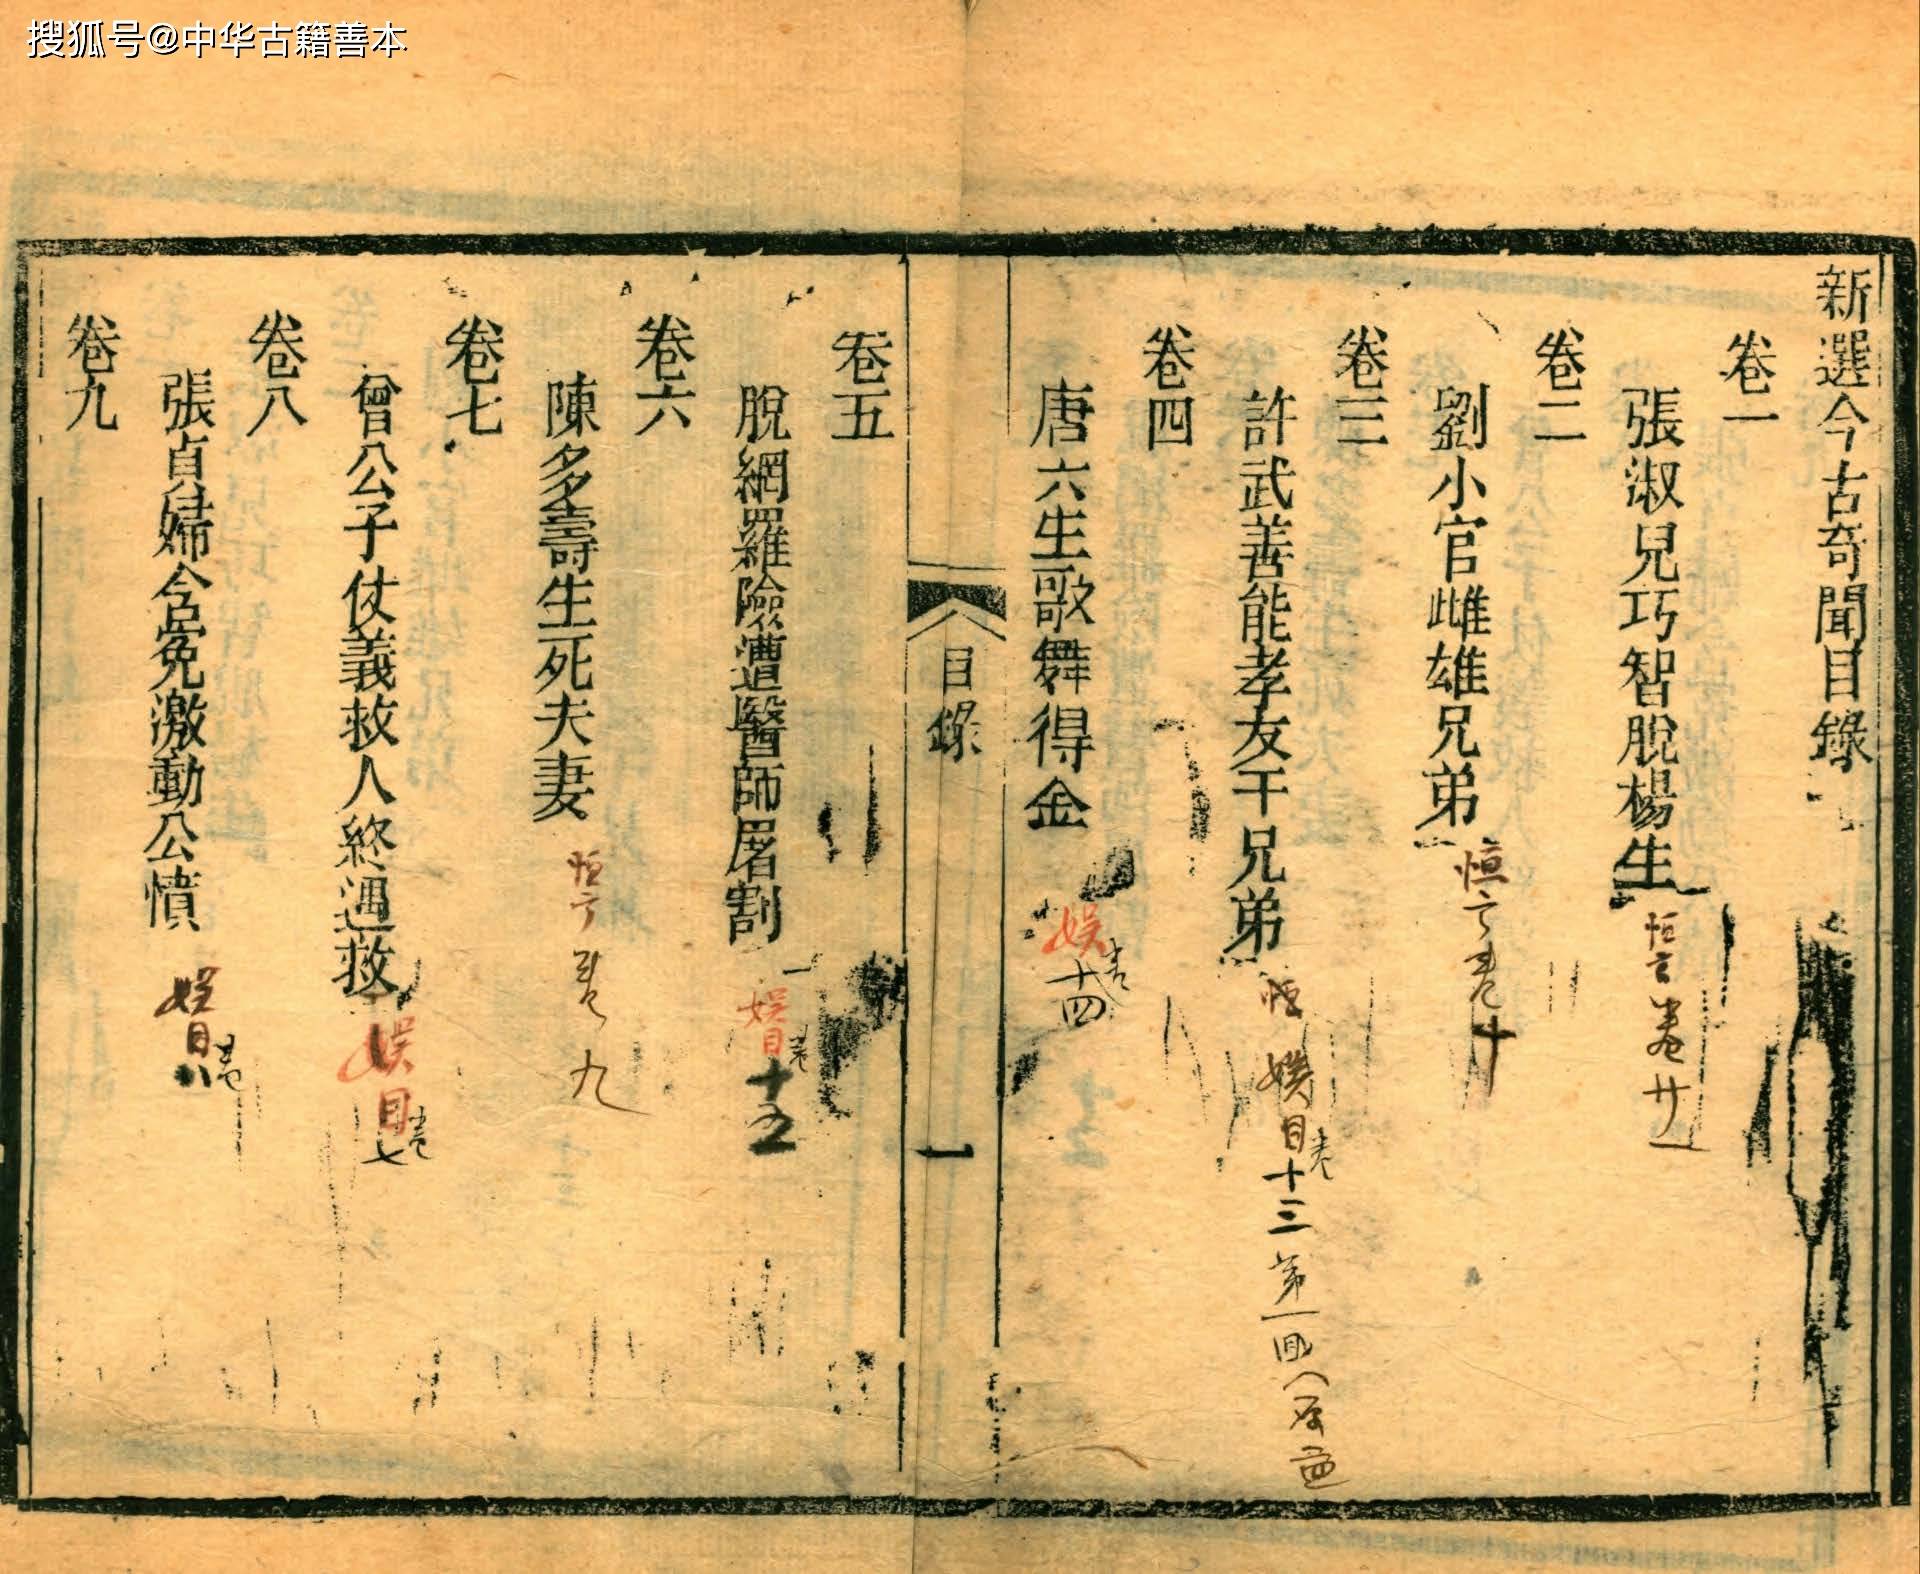 搜狐号@中华古籍善本
新選今古奇聞目錄
卷一
張淑兒巧智脫楊生
恒言卷廿一
卷二
劉小官雌雄兄弟
恒言卷十
卷三
許武善能孝友干兄弟
恒 娱目卷十三第一回
卷四
唐六生歌舞得金
娱卷十四
目錄
一
卷五
脫網羅險遭醫師屠割
娱目卷十五
卷六
陳多壽生死夫妻
恒言卷九
卷七
曾公子仗義救人終遇救
娱目卷七
卷八
張貞婦含冤激動公憤
娱目卷八
卷九